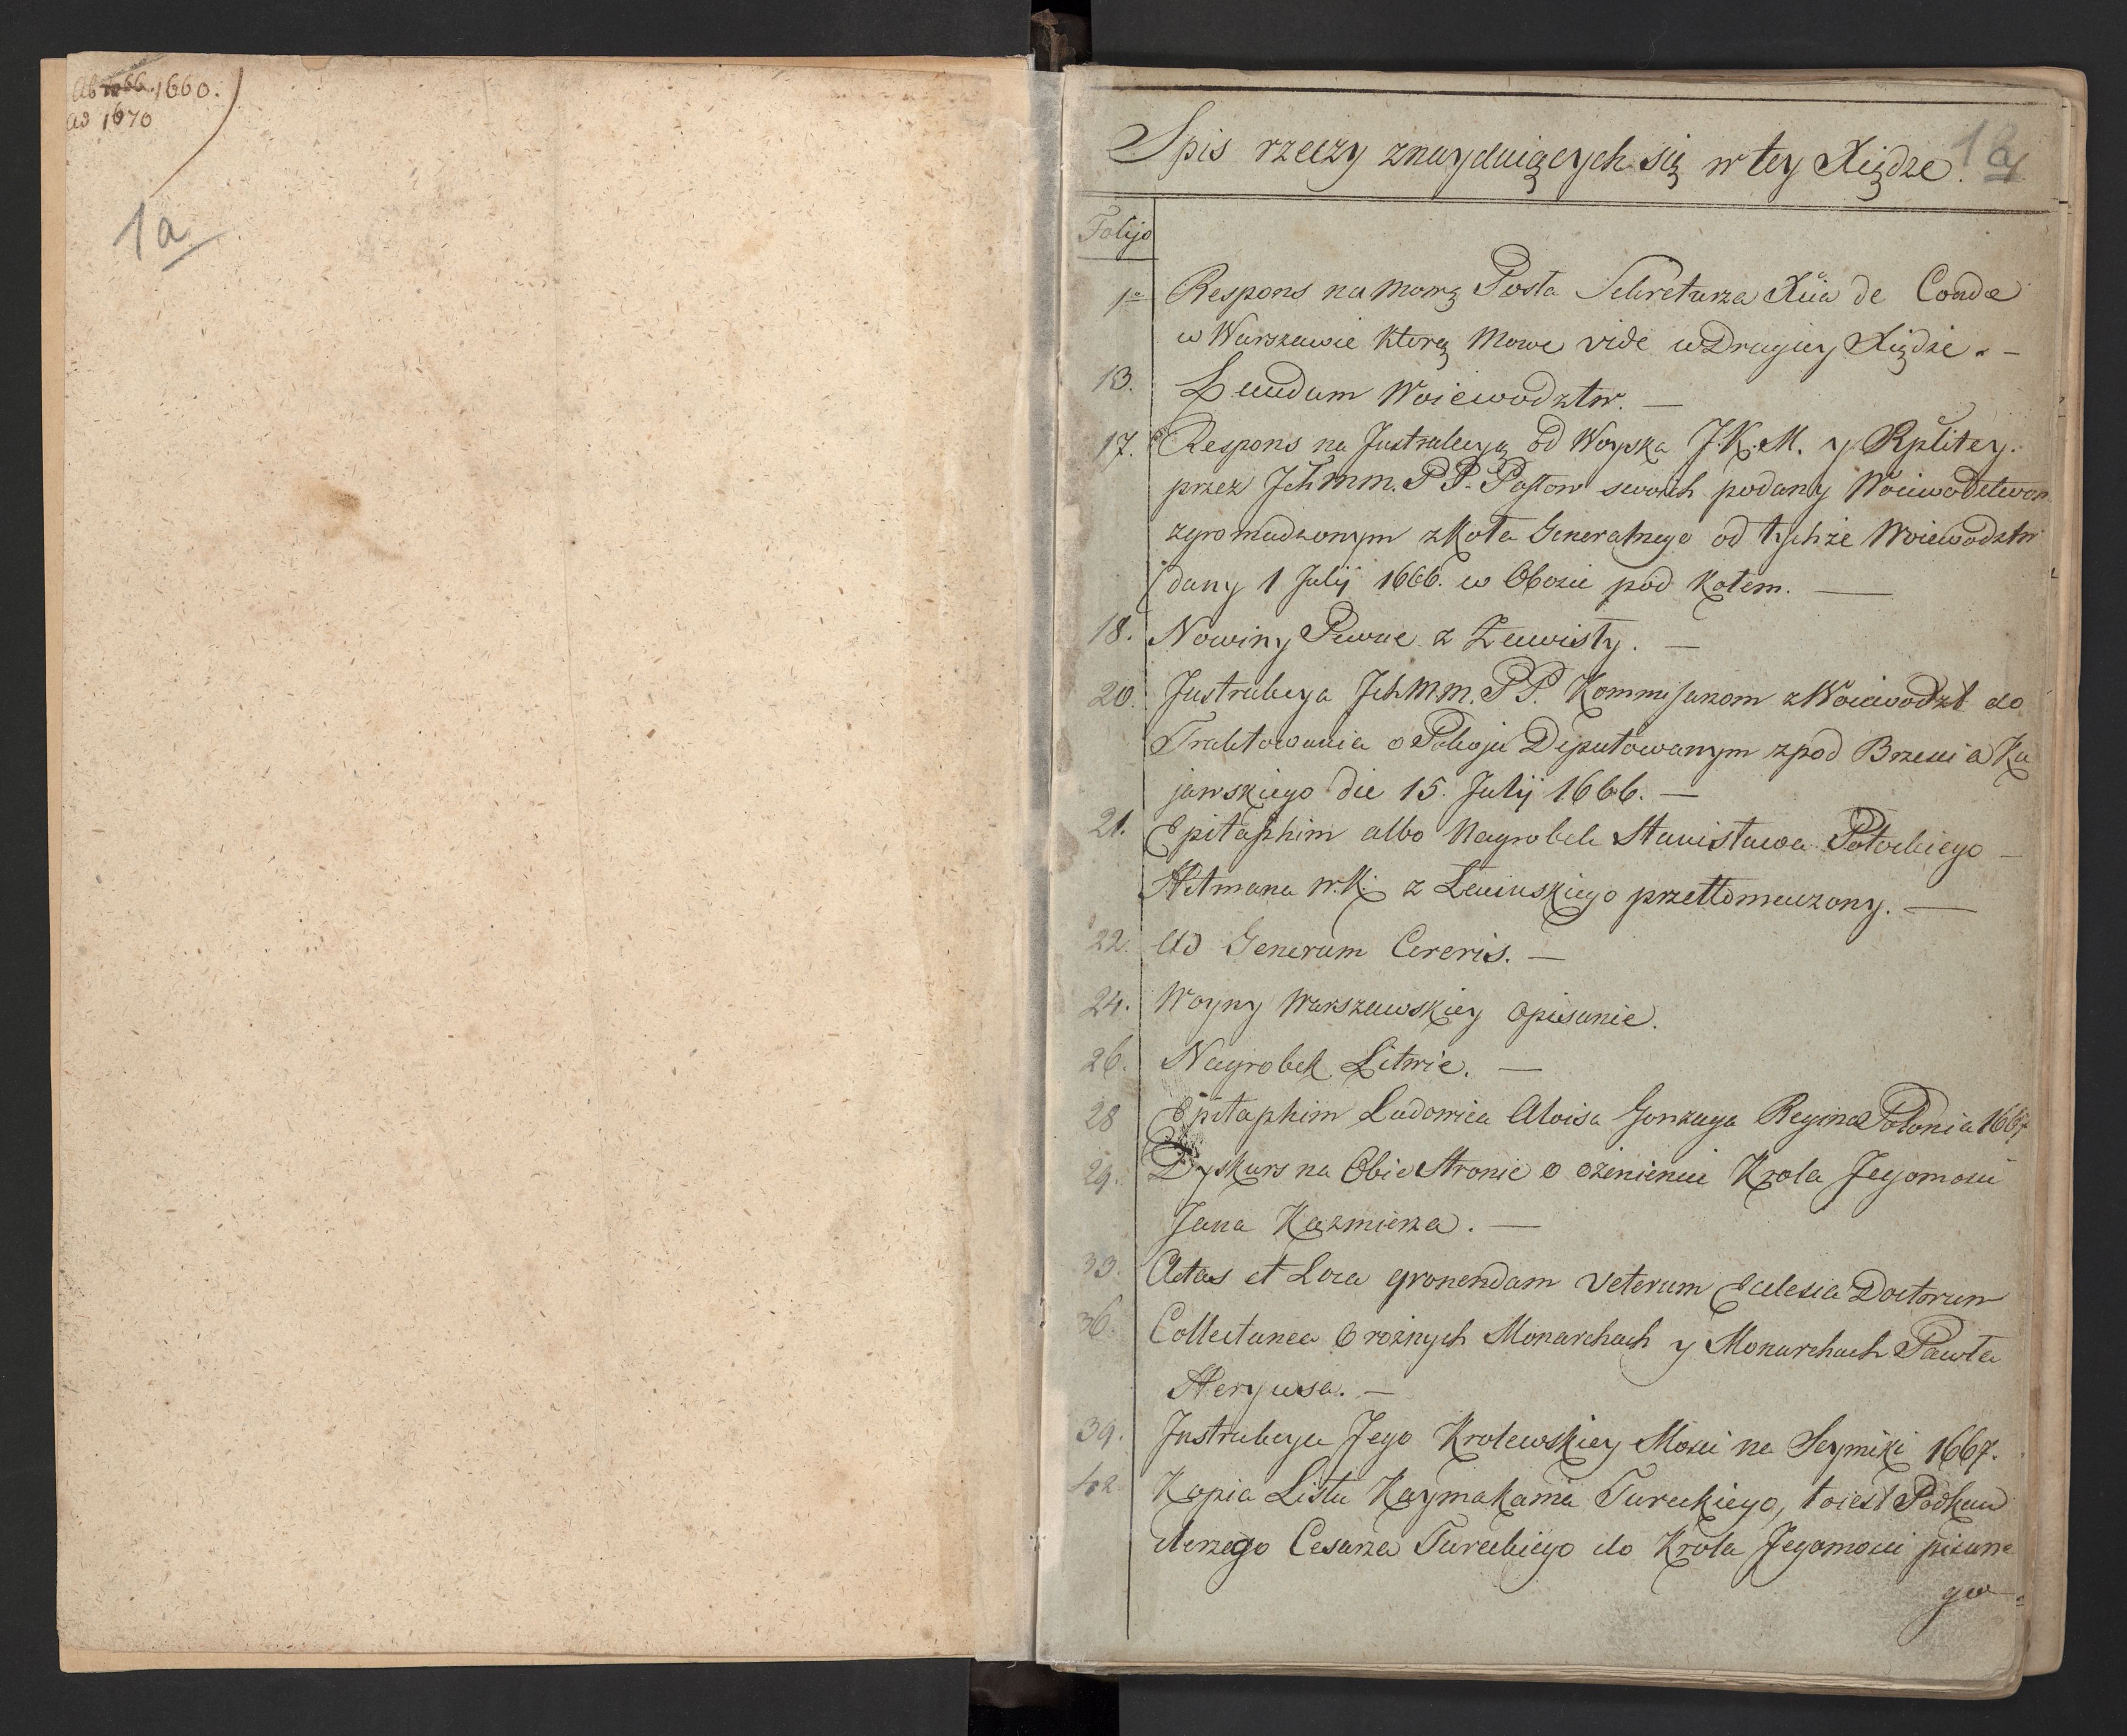 Ab 1660.
ad 1670
1a
Spis rzeczy znayduiących się w tey Xiędze.
1a
Folijo
1o Respons na Mowę Posła Sekretarza Xcia de Conde
w Warszawie ktorą Mowe vide w Drugiey Xiędze. –
13. Laudum Woiewodztw. –
17. Respons na Instrukcyą od Woyska J.K.M. y Rplitey.
przez Ichmm. PP. Posłow swoich podany Woiewodztwom
zgromadzonym z Koła Generalnego od tychże Woiewodztw
dany 1 Julij 1666. w Obozie pod Kołem. –
18. Nowiny Pewne z
20. Instrukcya Ichmm. PP. Kommisarzom z Woiewodzt do
Traktowania o Pokoju Deputowanym zpod Brzescia Ku
jawskiego die 15. Julij 1666. –
21. Epitaphim albo Nagrobek Stanisława Potockiego –
Hetmana W.K. z Łacinskiego przetłomaczony. –
22. Ad Generum Cereris. –
24. Woyny Warszawskiey Opisanie.
26. Nagrobek Litwie. –
28 Epitaphim Ludowica Aloisa Gonzaga Regina Polonia 1667
29. Dyskurs na Obie Stronie o ożenieniu Krola Jegomosci
Jana Kazmierza. –
33. Aetas et Loca veterum Eclesia Doctorum
36. Collectanea O rożnych Monarchach y Monarchach Pawła
39. Instrukcya Jego Krolewskiey Mosci na Seymiki 1667.
42 Kopia Listu Kaymakama Tureckiego, toiest Podkan
clerzego Cesarza Tureckiego do Krola Jegomosci pisane
go =